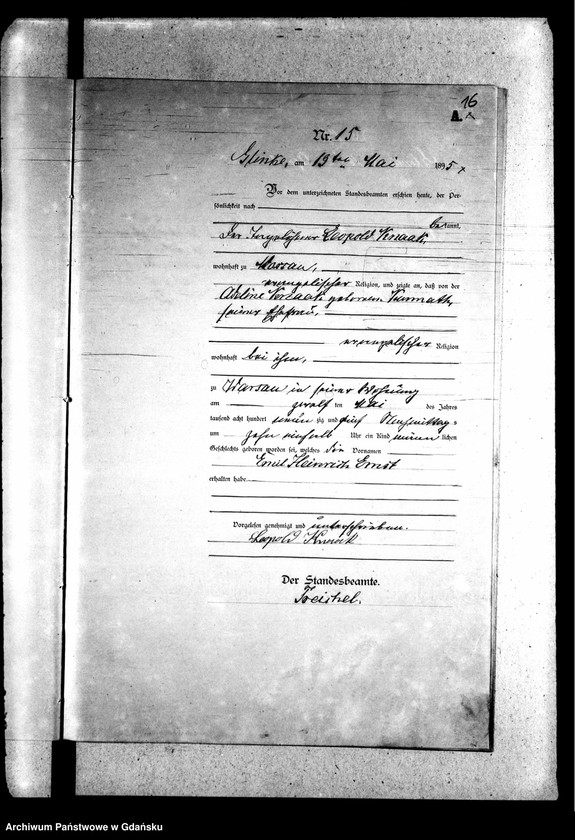 16
A.
Nr. 15
am 13ten Mai 1895
Vor dem unterzeichneten Standesbeamten erschien heute, der Per-
sönlichkeit nach
bekannt,
Der Leopold Knaack
wohnhaft zu Warsau,
evangelischer Religion, und zeigte an, daß von der
Knaack geborenen
seiner Ehefrau,
evangelischer Religion
wohnhaft bei ihm,
zu Warsau in seiner Wohnung
am zwölf ten Mai des Jahres
tausend acht hundert neun zig und fünf Nachmittag-
um zehn einhalb Uhr ein Kind männ lichen
Geschlechts geboren worden sei, welches die Vornamen
Emil Heinrich Ernst
erhalten habe
Vorgelesen genehmigt und unterschrieben.
Leopold Knaack
Der Standesbeamte.
Archiwum Państwowe w Gdańsku